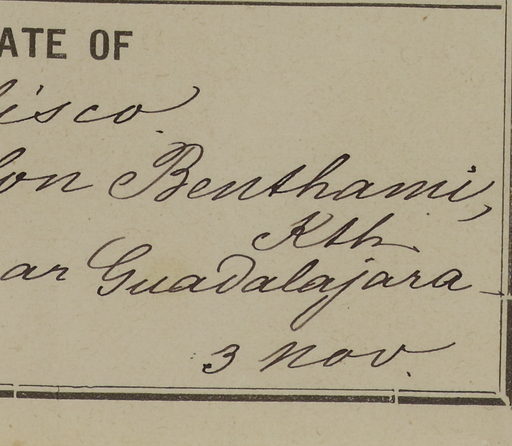 ATE OF
lisco.
lon Benthami,
Kth.
ar Guadalajara
3 Nov.